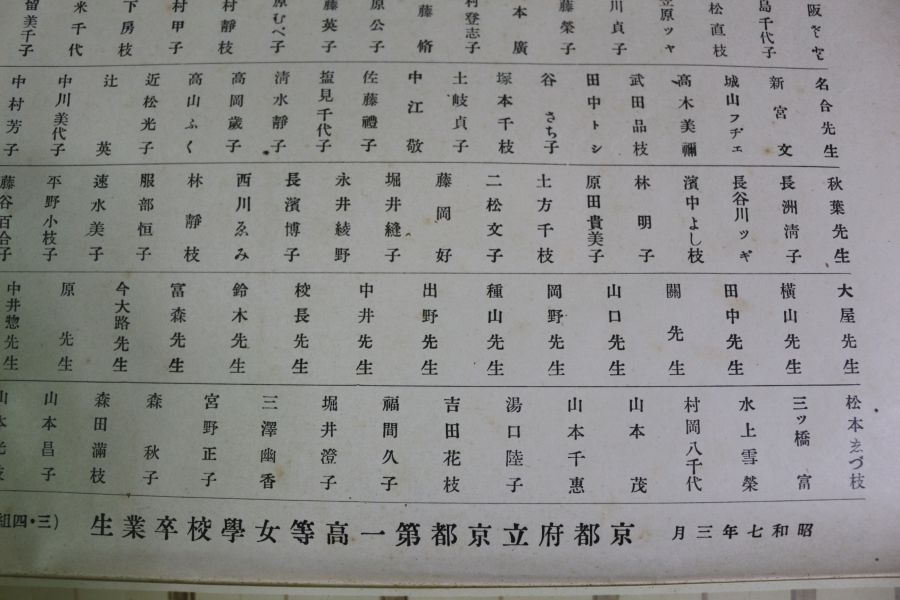 阪 やを
島千代子
松直枝
笠原ツヤ
川貞子
藤榮子
本 廣
村登志子
藤 脩
原公子
藤英子
原むべ子
村靜枝
村甲子
下房枝
米千代
留美千子
名合先生
新宮 文
城山フヂェ
高木美禰
武田品枝
田中トシ
谷 さち子
塚本千枝
土岐貞子
中江 敬
佐藤禮子
塩見千代子
清水靜子
高岡歲子
高山ふく
近松光子
辻 英
中川美代子
中村芳子
秋葉先生
長洲淸子
長谷川ツギ
濱中よし枝
林 明子
原田貴美子
土方千枝
二松文子
藤岡 好
堀井縫子
永井綾野
長濱博子
西川ゑみ
林 靜枝
服部恒子
速水美子
平野小枝子
藤谷百合子
大屋先生
橫山先生
田中先生
關先生
山口先生
岡野先生
種山先生
出野先生
中井先生
校長先生
鈴木先生
富森先生
今大路先生
原先生
中井惣先生
松本ゑづ枝
三ッ橋 富
水上雪榮
村岡八千代
山本 茂
山本千惠
湯口陸子
吉田花枝
福間久子
堀井澄子
三澤幽香
宮野正子
森 秋子
森田滿枝
山本昌子
山本光枝
昭和七年三月 京都府立京都第一高等女學校卒業生 (三・四組